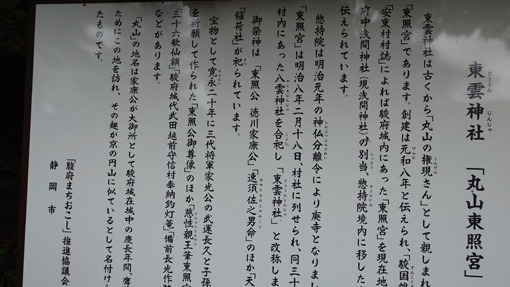 東雲神社 「丸山東照宮」
しののめ じんじゃ
東雲神社は古くから「丸山の権現さん」として親しまれ
「東照宮」であります。創建は元和八年と伝えられ、「駿国雑
「安東村村誌」によれば駿府城内にあった「東照宮」を現在地
府中浅間神社(現浅間神社)の別当、惣持院境内に移した
伝えられています。
惣持院は明治元年の神仏分離令により廃寺となりまし
「東照宮」は明治八年二月十八日、村社に列せられ、同三十
村内にあった八雲神社を合祀し「東雲神社」と改称しま
御祭神は「東照公 徳川家康公」「速須佐之男命」のほか「天
「稲荷社」が祀られています。
宝物として寛永二十年に三代将軍家光公の武運長久と子孫
を祈願して作られた「東照公御尊像」のほか「慈性親王筆東照宮
三十六歌仙額」「駿府城代武田越前守信村奉納釣灯篭」「備前長光作
などがあります。
「丸山」の地名は家康公が大御所として駿府城在城中の慶長年間、鷹
ためにこの地を訪れ、その趣が京の円山に似ているとして名付けら
たものです。
「駿府まちおこし」推進協議会
静岡市